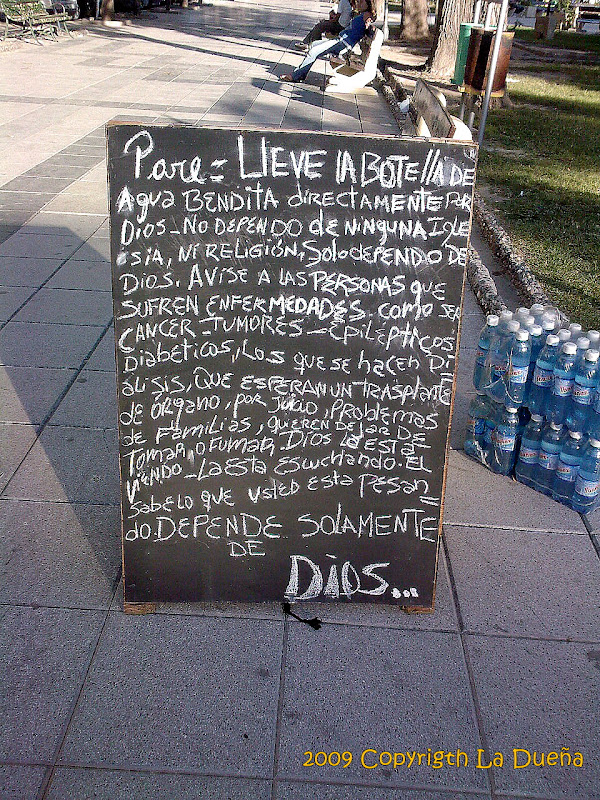 Pare= LLEVE lA BOTEllA DE
AgUA BENDITA dIRECTAMENTE POR
DIOS - NO DEPENDO DE NINGUNA IglE
SIA, NI RELIGIÓN, Solo dEPENDO DE
DIOS. AVISE A lAS PERSONAS qUE
SUFREN ENFERMEDADES. COMO SER
CANCER - TUMORES - EPILÉPTICOS
DIAbETICOS, LOS qUE SE HACEN DI
ÁLISIS, QUE ESPERAN UN TRASPlANTE
dE ÓRGANO, POR JUICIO, PROblEMAS
dE FAMILIAS, qUIEREN DEJAR DE
TOMAR, O FUMAR. DIOS lO ESTÁ
VIENDO - LA ESTA ESCUCHANDO. El
SAbE lO qUE USTED ESTA PESAN=
do. DEPENDE SOLAMENTE
DE
DIOS...
2009 Copyrigth La Dueña